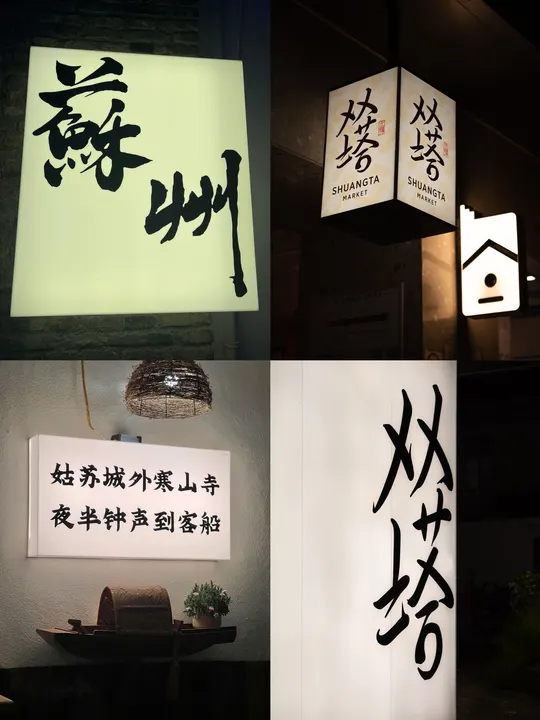 蘇
州
双塔
SHUANGTA
MARKET
双塔
SHUANGTA
MARKET
姑苏城外寒山寺
夜半钟声到客船
双塔